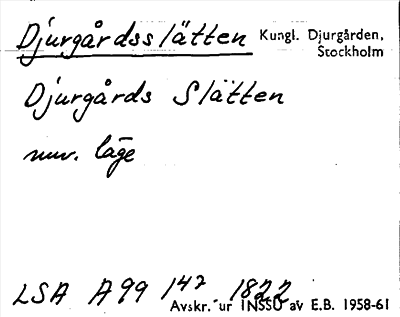 Djurgårdsslätten Kungl. Djurgården,
Stockholm
Djurgårds Slätten
nuv. läge
LSA A99 142 1822
Avskr. ur INSSU av E.B. 1958-61